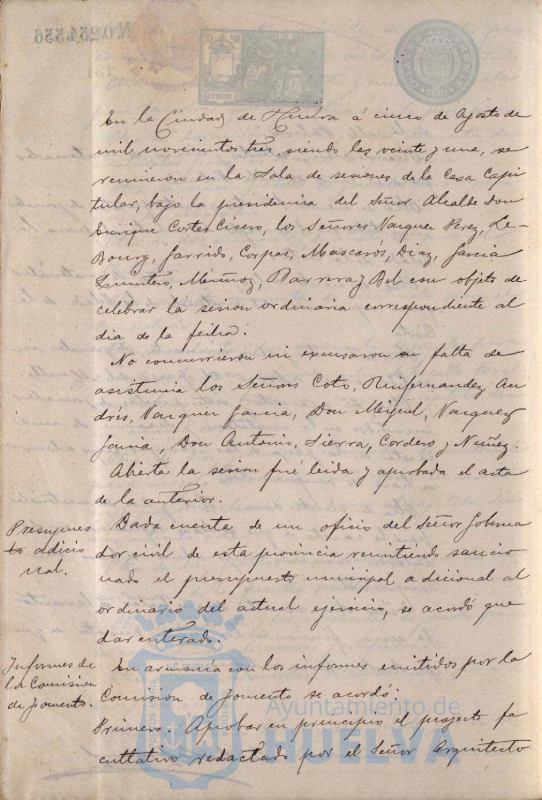 Nº 0.254.556
En la Ciudad de Huelva á cinco de Agosto de
mil novecientos tres, siendo las veinte y una, se
reunieron en la Sala de sesiones de la Casa Capi
tular, bajo la presidencia del Señor Alcalde Don
Enrique Cortes Cicero, los Señores Vazquez Perez, Le-
Bourg, Garrido, Corpas, Mascarós, Diaz, Garcia
Quintero, Muñoz, Barrera y Bel con objeto de
celebrar la sesion ordinaria correspondiente al
dia de la fecha.
No concurrieron ni excusaron su falta de
asistencia los Señores Coto, Ruifernandez, An
drés, Vazquez Garcia, Don Miguel, Vazquez
Garcia, Don Antonio, Sierra, Cordero y Nuñez.
Abierta la sesion fué leida y aprobada el acta
de la anterior.
Presupues
to adicio
nal.
Dada cuenta de un oficio del Señor Goberna
dor civil de esta provincia remitiendo sancio
nado el presupuesto municipal adicional al
ordinario del actual ejercicio, se acordó que
dar enterado.
Informes de
la Comision
de fomento.
En armonia con los informes emitidos por la
Comision de fomento se acordó:
Primero. Aprobar en principio el proyecto fa
cultativo redactado por el Señor Arquitecto
Ayuntamiento de
HUELVA